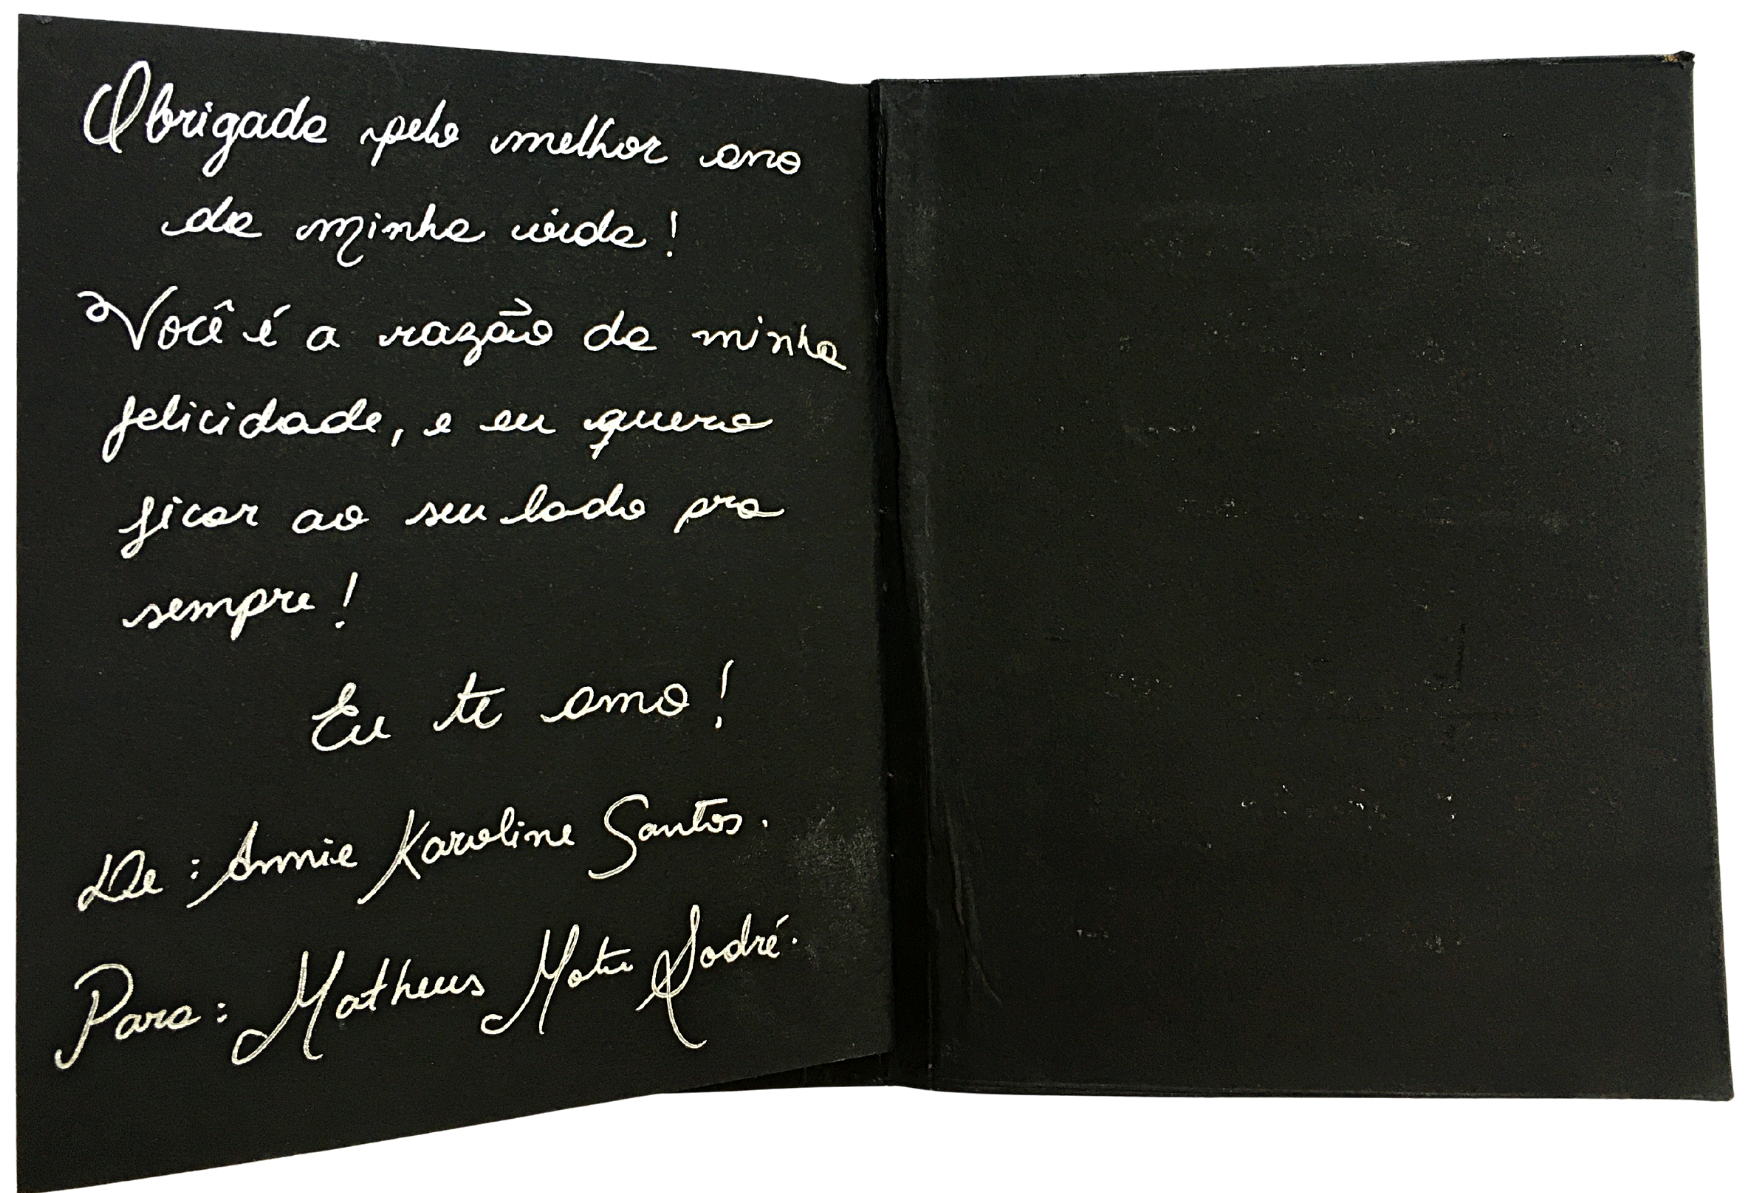 Obrigada pelo melhor ano
da minha vida!
Você é a razão da minha
felicidade, e eu quero
ficar ao seu lado pra
sempre!
Eu te amo!
De: Annie Karoline Santos.
Para: Matheus Sodré.